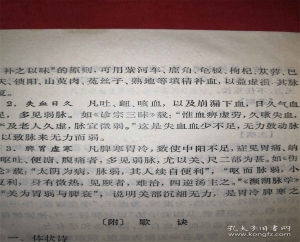 补之以味"的原则，可用紫河车、鹿角、龟板、枸杞、苁蓉、巴
天、锁阳、山萸肉、菟丝子、熟地等填精补血，以益虚损
2．失血日久　凡吐、衄、咳血，以及崩漏下血，日久气血
足，多见弱脉，如《诊宗三昧》说："惟血痹虚劳，久嗽失血，
及老人久虚，脉宜微弱。"这是失血血少不足，无力鼓动脉
以致脉来无力而弱。
3．脾胃虚寒　凡脾寒胃冷，致使中阳不足，症见胃痛，纳
呕吐，便溏，腹痛者，多见弱脉，尤以关、尺二部为甚。如《伤
论》说："太阴为病，脉弱，其人续自便利"，"呕而脉弱，小
复利，身有微热，见厥者，难治，四逆汤主之。"《濒湖脉学》
"关为胃弱与脾衰"，说明关部沉细无力，是胃冷脾寒之
〔附〕　歌　诀
一、体状诗
孔夫子旧书网